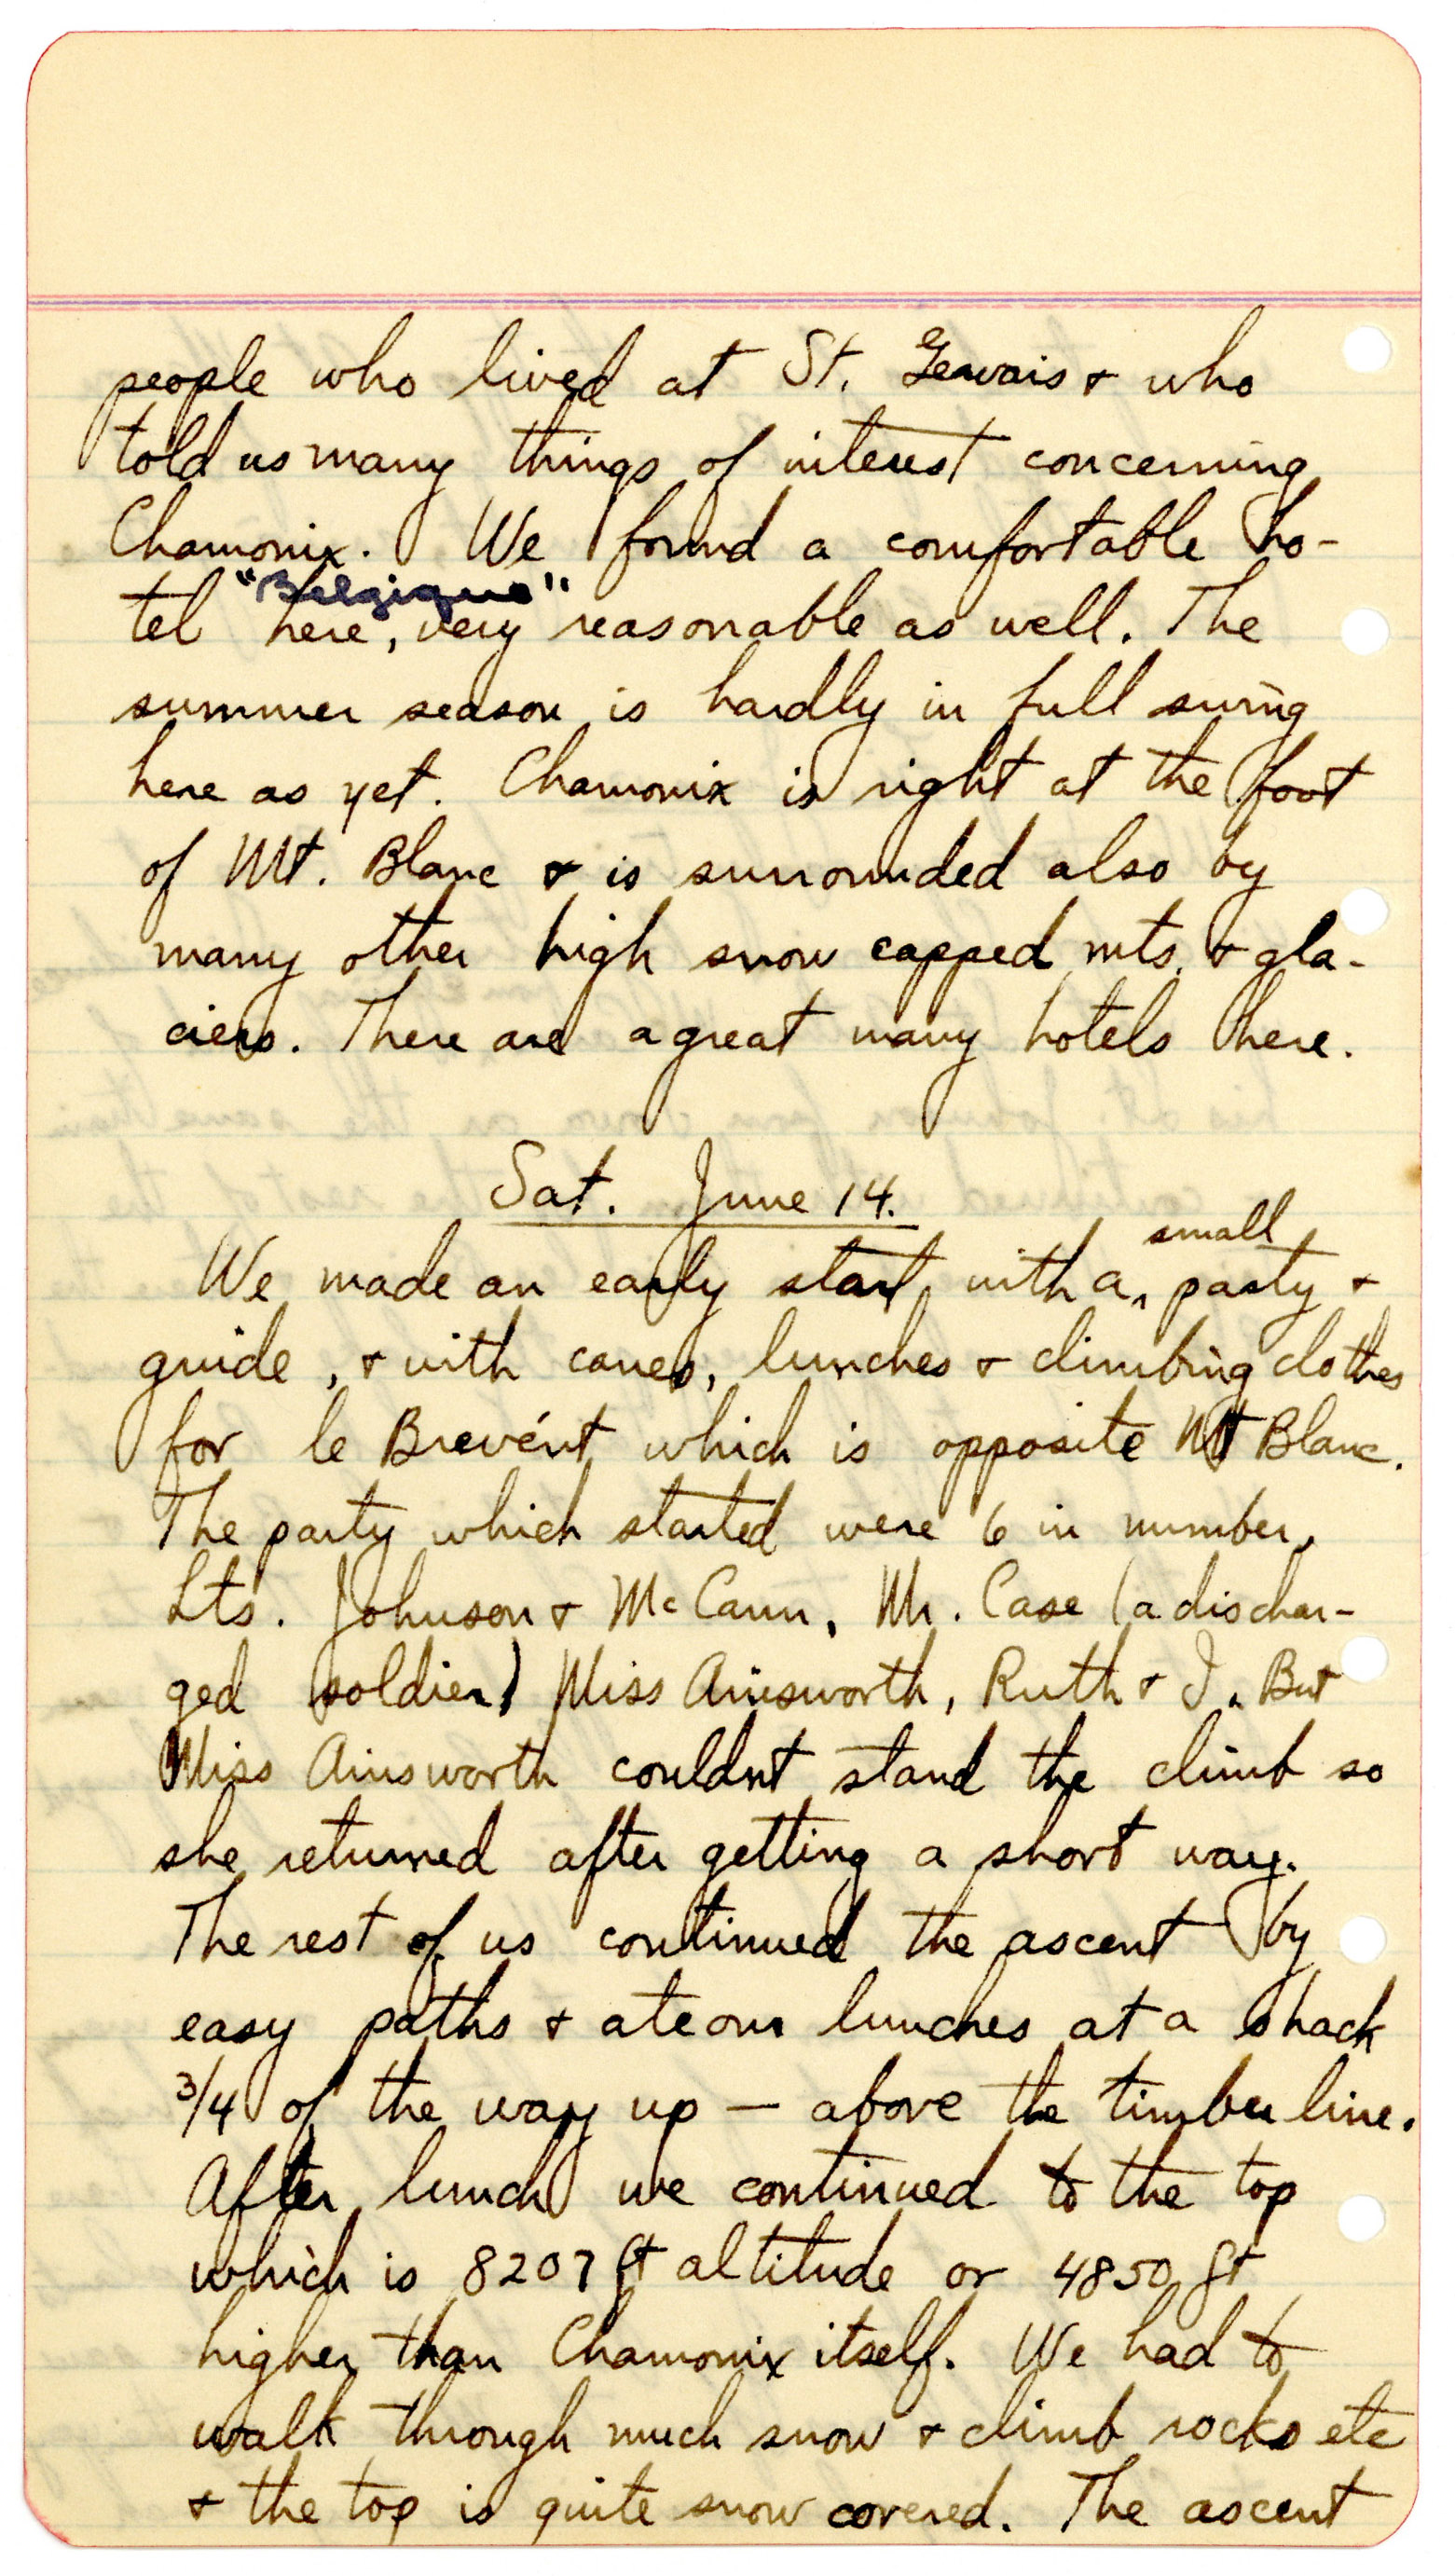 people who lived at St. Gervais & who
told us many things of interest concerning
Chamonix. We found a comfortable ho-
"Belgique"
tel here, very reasonable as well. The
summer season is hardly in full swing
here as yet. Chamonix is right at the foot
of Mt. Blanc & is surrounded also by
many other high snow capped mts. & gla-
ciers. There are a great many hotels here.
Sat. June 14.
small
We made an early start, with a ‸ party &
guide, & with canes, lunches & climbing clothes
for le Brevént which is opposite Mt Blanc.
The party which started were 6 in number,
Lts. Johnson & McCann, Mr. Case (a dischar-
ged soldier) Miss Ainsworth, Ruth & I. But
Miss Ainsworth couldn't stand the climb so
she returned after getting a short way.
The rest of us continued the ascent by
easy paths & ate our lunches at a shack
3/4 of the way up — above the timber line.
After lunch we continued to the top
which is 8207 ft altitude or 4850 ft
higher than Chamonix itself. We had to
walk through much snow & climb rocks etc
& the top is quite snow covered. The ascent